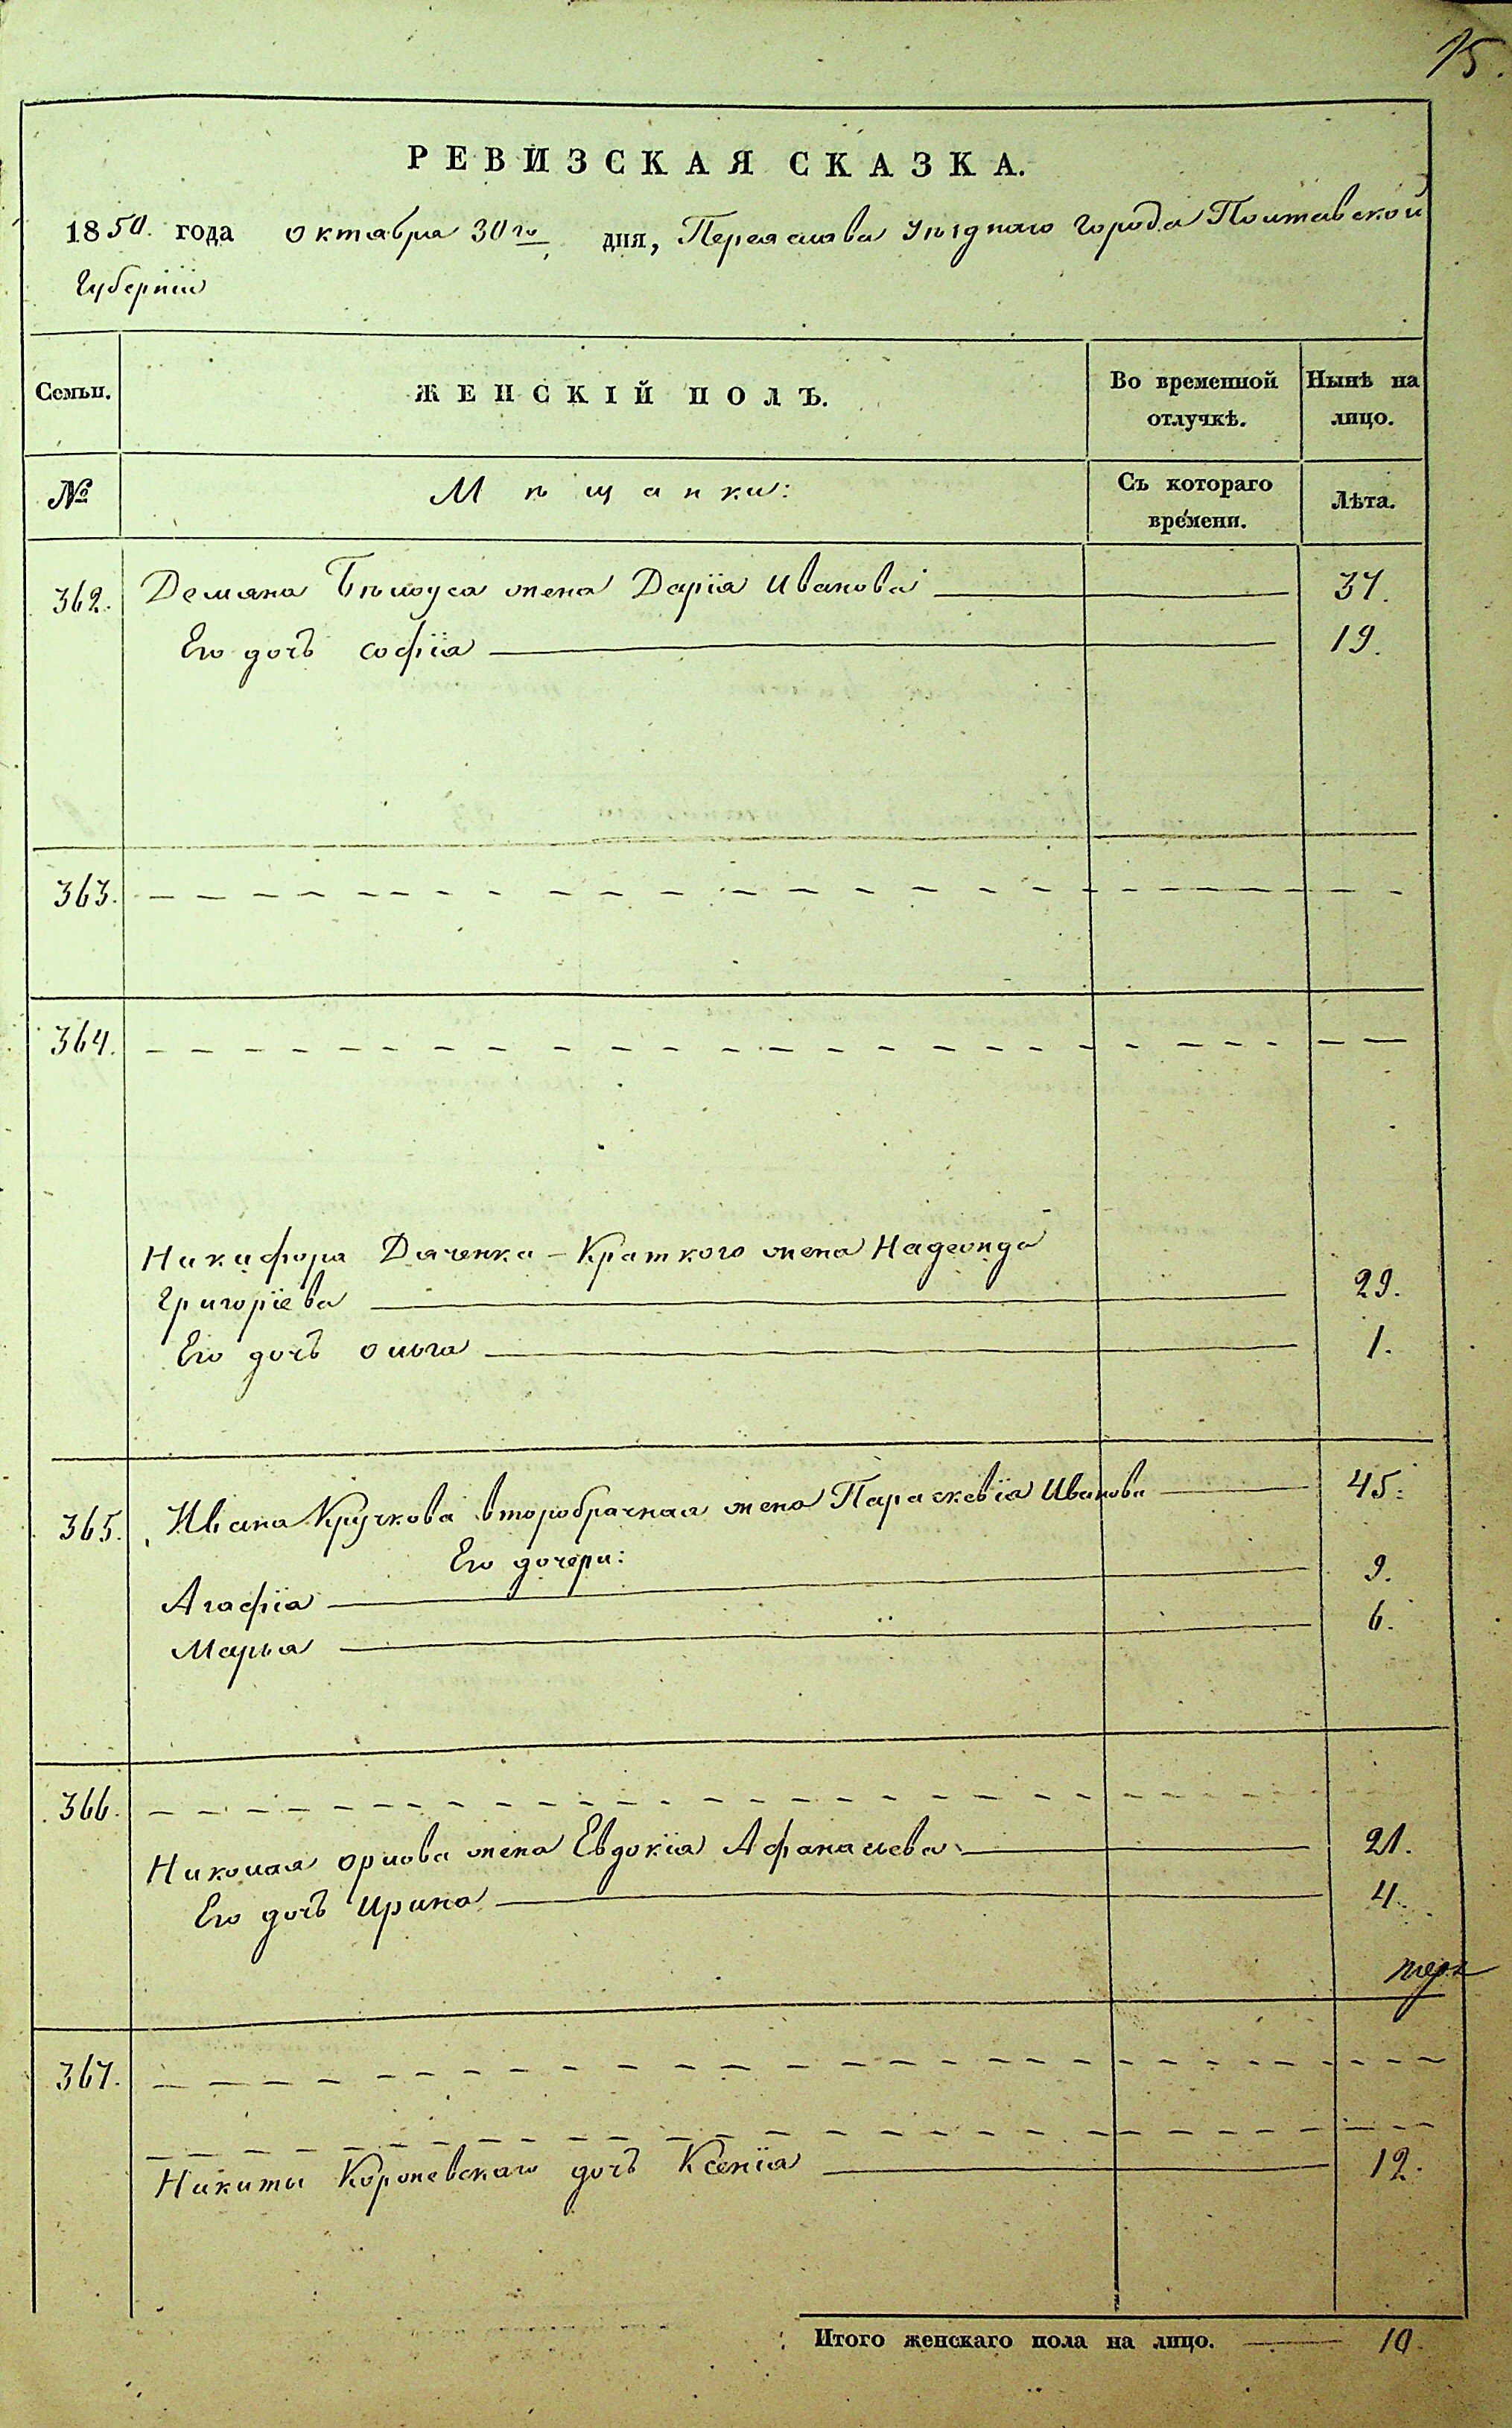 15.
РЕВИЗСКАЯ СКАЗКА.
1850. года октября 30го дня, Переяслава уѣзднаго города Полтавской
Губерніи
Семьи.
ЖЕНСКІЙ ПОЛЪ.
Во временной отлучкѣ.
Нынѣ на лицо.
№
Мѣщанки:
Съ котораго времени.
Лѣта.
362. Демяна Бѣлоуса жена Дарія Иванова 37.
Его дочь софія 19.
363.
364.
Никифора Дяченка-Краткого жена Надежда
Григоріева 29.
Его дочь ольга 1.
365. Ивана Кручкова второбрачная жена Параскевія Иванова 45.
Его дочери:
Агафія 9.
Марья 6.
366.
Николая орлова жена Евдокія Афанасьева 21.
Его дочь Ирина 4.
367.
Никиты Королевскаго дочь Ксенія 12.
Итого женскаго пола на лицо. 10.